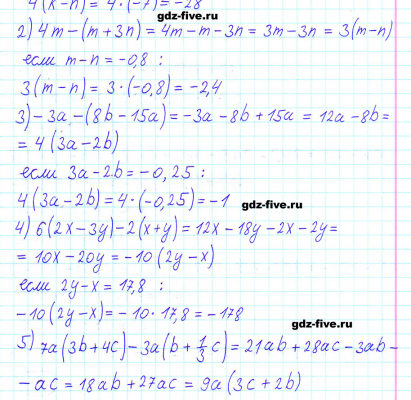 4(k-n) = 4·(-7) = -28
gdz-five.ru
2) 4m-(m+3n) = 4m-m-3n = 3m-3n = 3(m-n)
если m-n = -0,8 :
3(m-n) = 3·(-0,8) = -2,4
3) -3a-(8b-15a) = -3a-8b+15a = 12a-8b =
= 4(3a-2b)
если 3a-2b = -0,25 :
4(3a-2b) = 4·(-0,25) = -1
gdz-five.ru
4) 6(2x-3y)-2(x+y) = 12x-18y-2x-2y =
= 10x-20y = -10(2y-x)
если 2y-x = 17,8 :
-10(2y-x) = -10·17,8 = -178
gdz-five.ru
5) 7a(3b+4c)-3a(b+1/3 c) = 21ab+28ac-3ab-
-ac = 18ab+27ac = 9a(3c+2b)